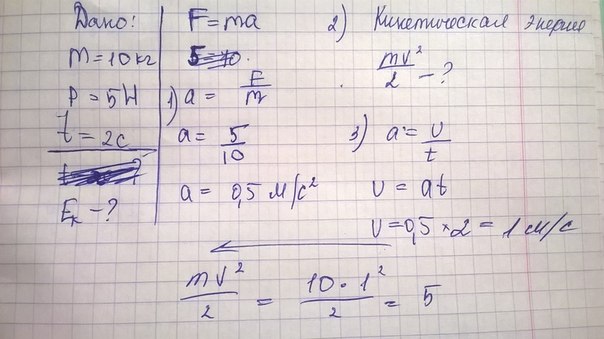 Дано:
m = 10 кг
P = 5 Н
t = 2с
Eк - ?
F = ma
1) a = F/m
a = 5/10
a = 0,5 м/с²
2) Кинетическая Энергия
mv²/2 - ?
3) a = v/t
v = at
v = 0,5 × 2 = 1 м/с
mv²/2 = 10 · 1²/2 = 5